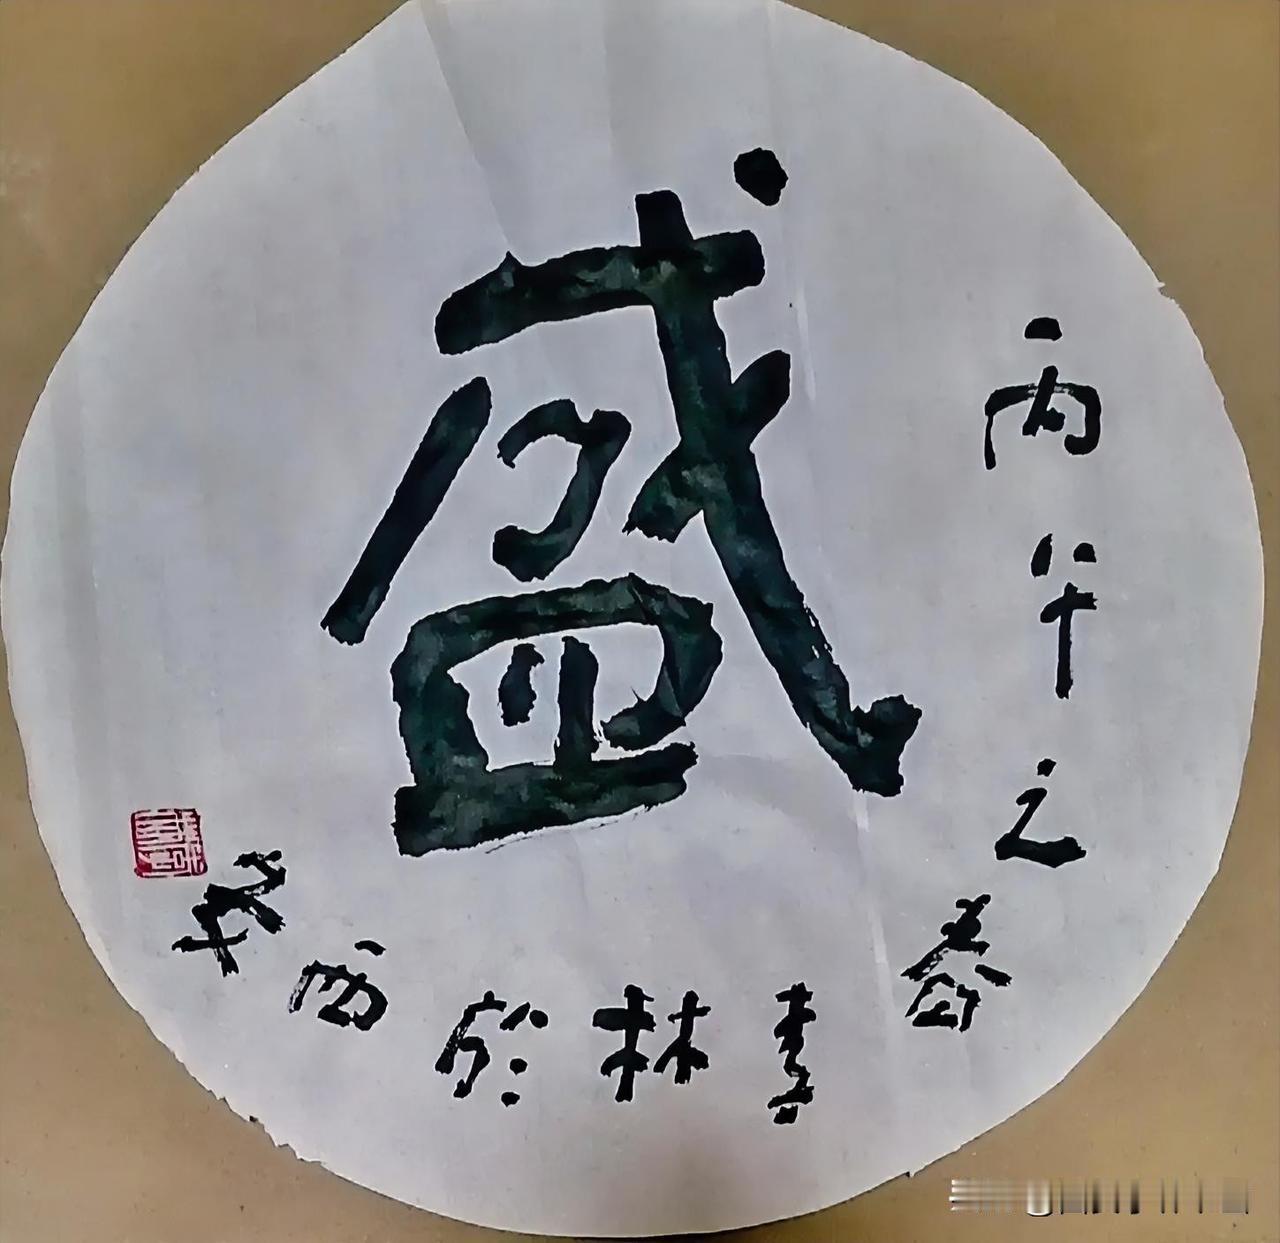 盛
丙午之春林於西安